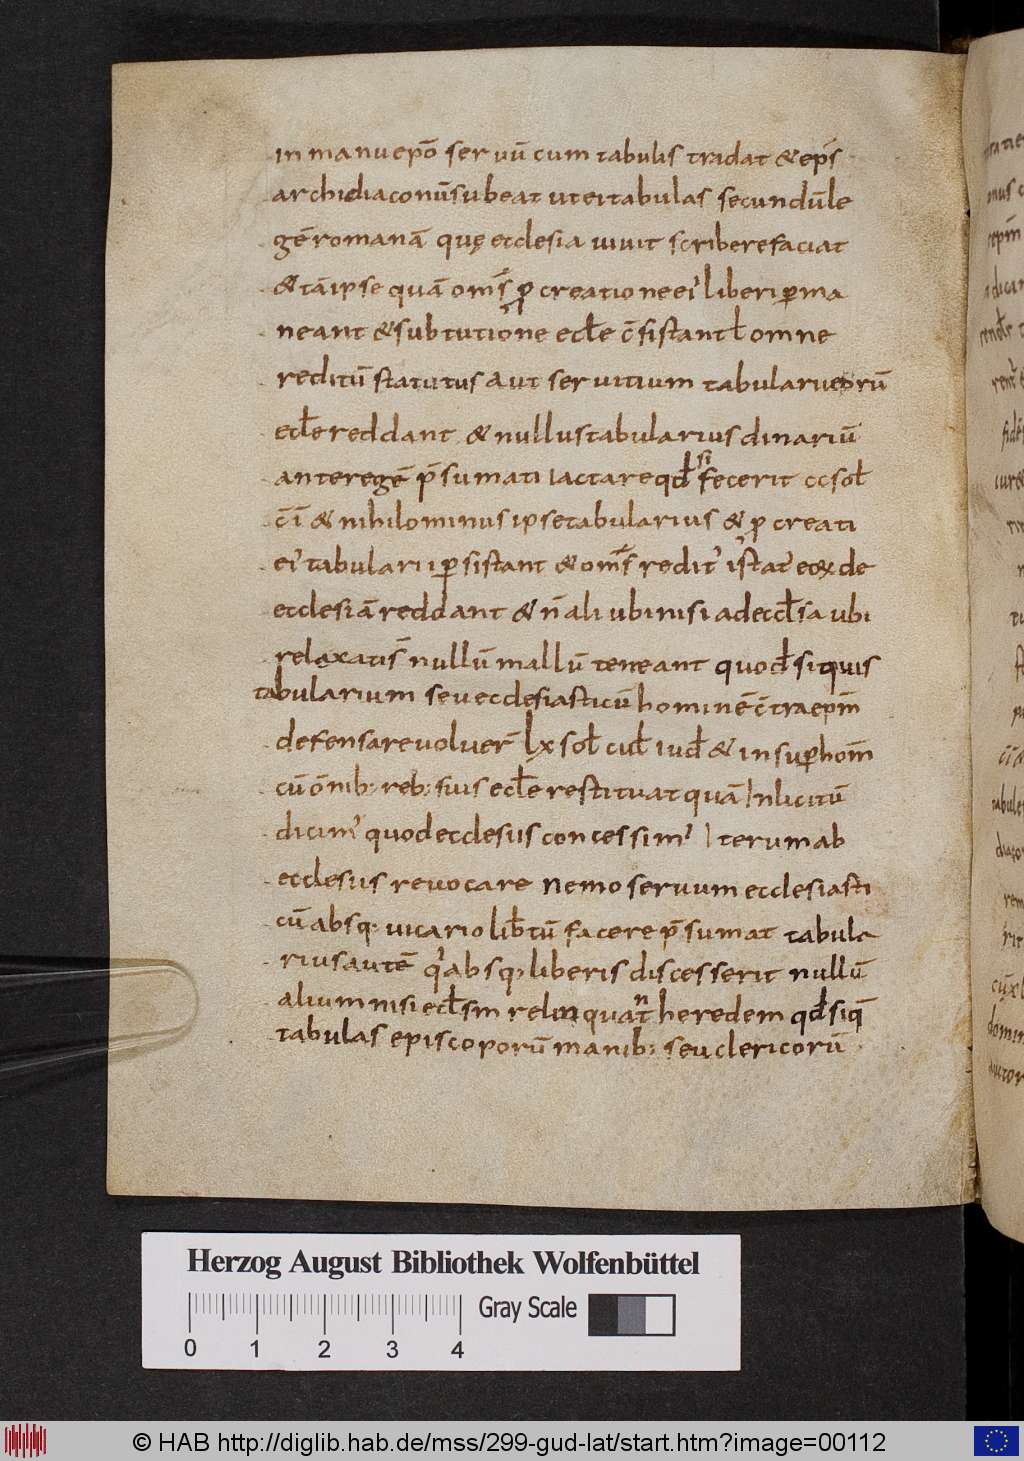 in manu ep̄o seruū cum tabulis tradat & ep̄s
archidiaconū subeat ut ei tabulas secundū le
gē romanā quę ecclesia uiuit scribere faciat
& tā ipse quā om̄s ꝓcreatione ei' liberi ꝑma
neant & sub tutione eccle c̄sistant ł omne
reditū status aut seruitium tabularii eorū
eccłe reddant & nullus tabularius dinariū
ante regē p̄sumat iactare qđ si fecerit ccsoł
c̄ī & nihilominus ipse tabularius & ꝓcreati
ei' tabularii ꝑsistant & om̄s redit' stat' eox de
ecclesiā reddant & n̄ aliubi nisi ad eccłsa ubi
relaxati s̄ nullū mallū teneant quod si quis
tabularium seu ecclesiasticū hominē c̄tra ep̄m
defensare uoluer̄ lx soł cuł iud & insuꝑ hom̄
cū ōnib; reb; suis eccłe restituat quā Inlicitū
dicim' quod ecclesiis concessim' Iterum ab
ecclesiis reuocare nemo seruum ecclesiasti
cū absq; uicario libtū facere p̄sumat tabula
rius autē q' absq; liberis discesserit nullū
alium nisi eccłsm relinquat n heredem qđ siq̄
tabulas episcoporū manib; seu clericorū
Herzog August Bibliothek Wolfenbüttel
Gray Scale
0 1 2 3 4
© HAB http://diglib.hab.de/mss/299-gud-lat/start.htm?image=00112